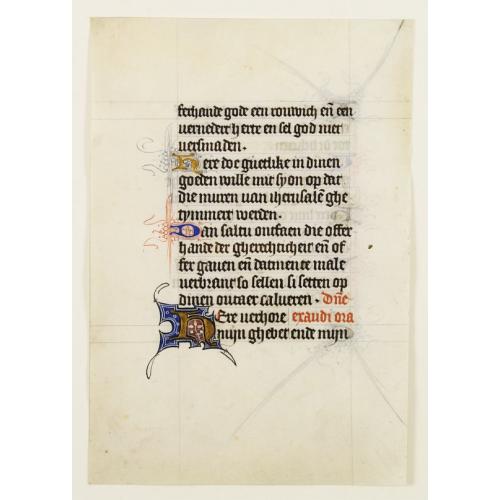 ferhande gode een rouwich en̄ een
verneder herte en sel god niet
versmaden.
Here doe guetlike in dinen
goeden wille mit syon op dat
die muren van iherusalē ghe
tymmert werden.
Dan saltu ontfaen die offer
hande der gherechticheit en̄ of
fer gauen en̄ datmen te male
verbrant so sellen si setten op
dinen outaer calueren. Dn̄e
Here verhore exaudi ora
mijn ghebet ende mijn